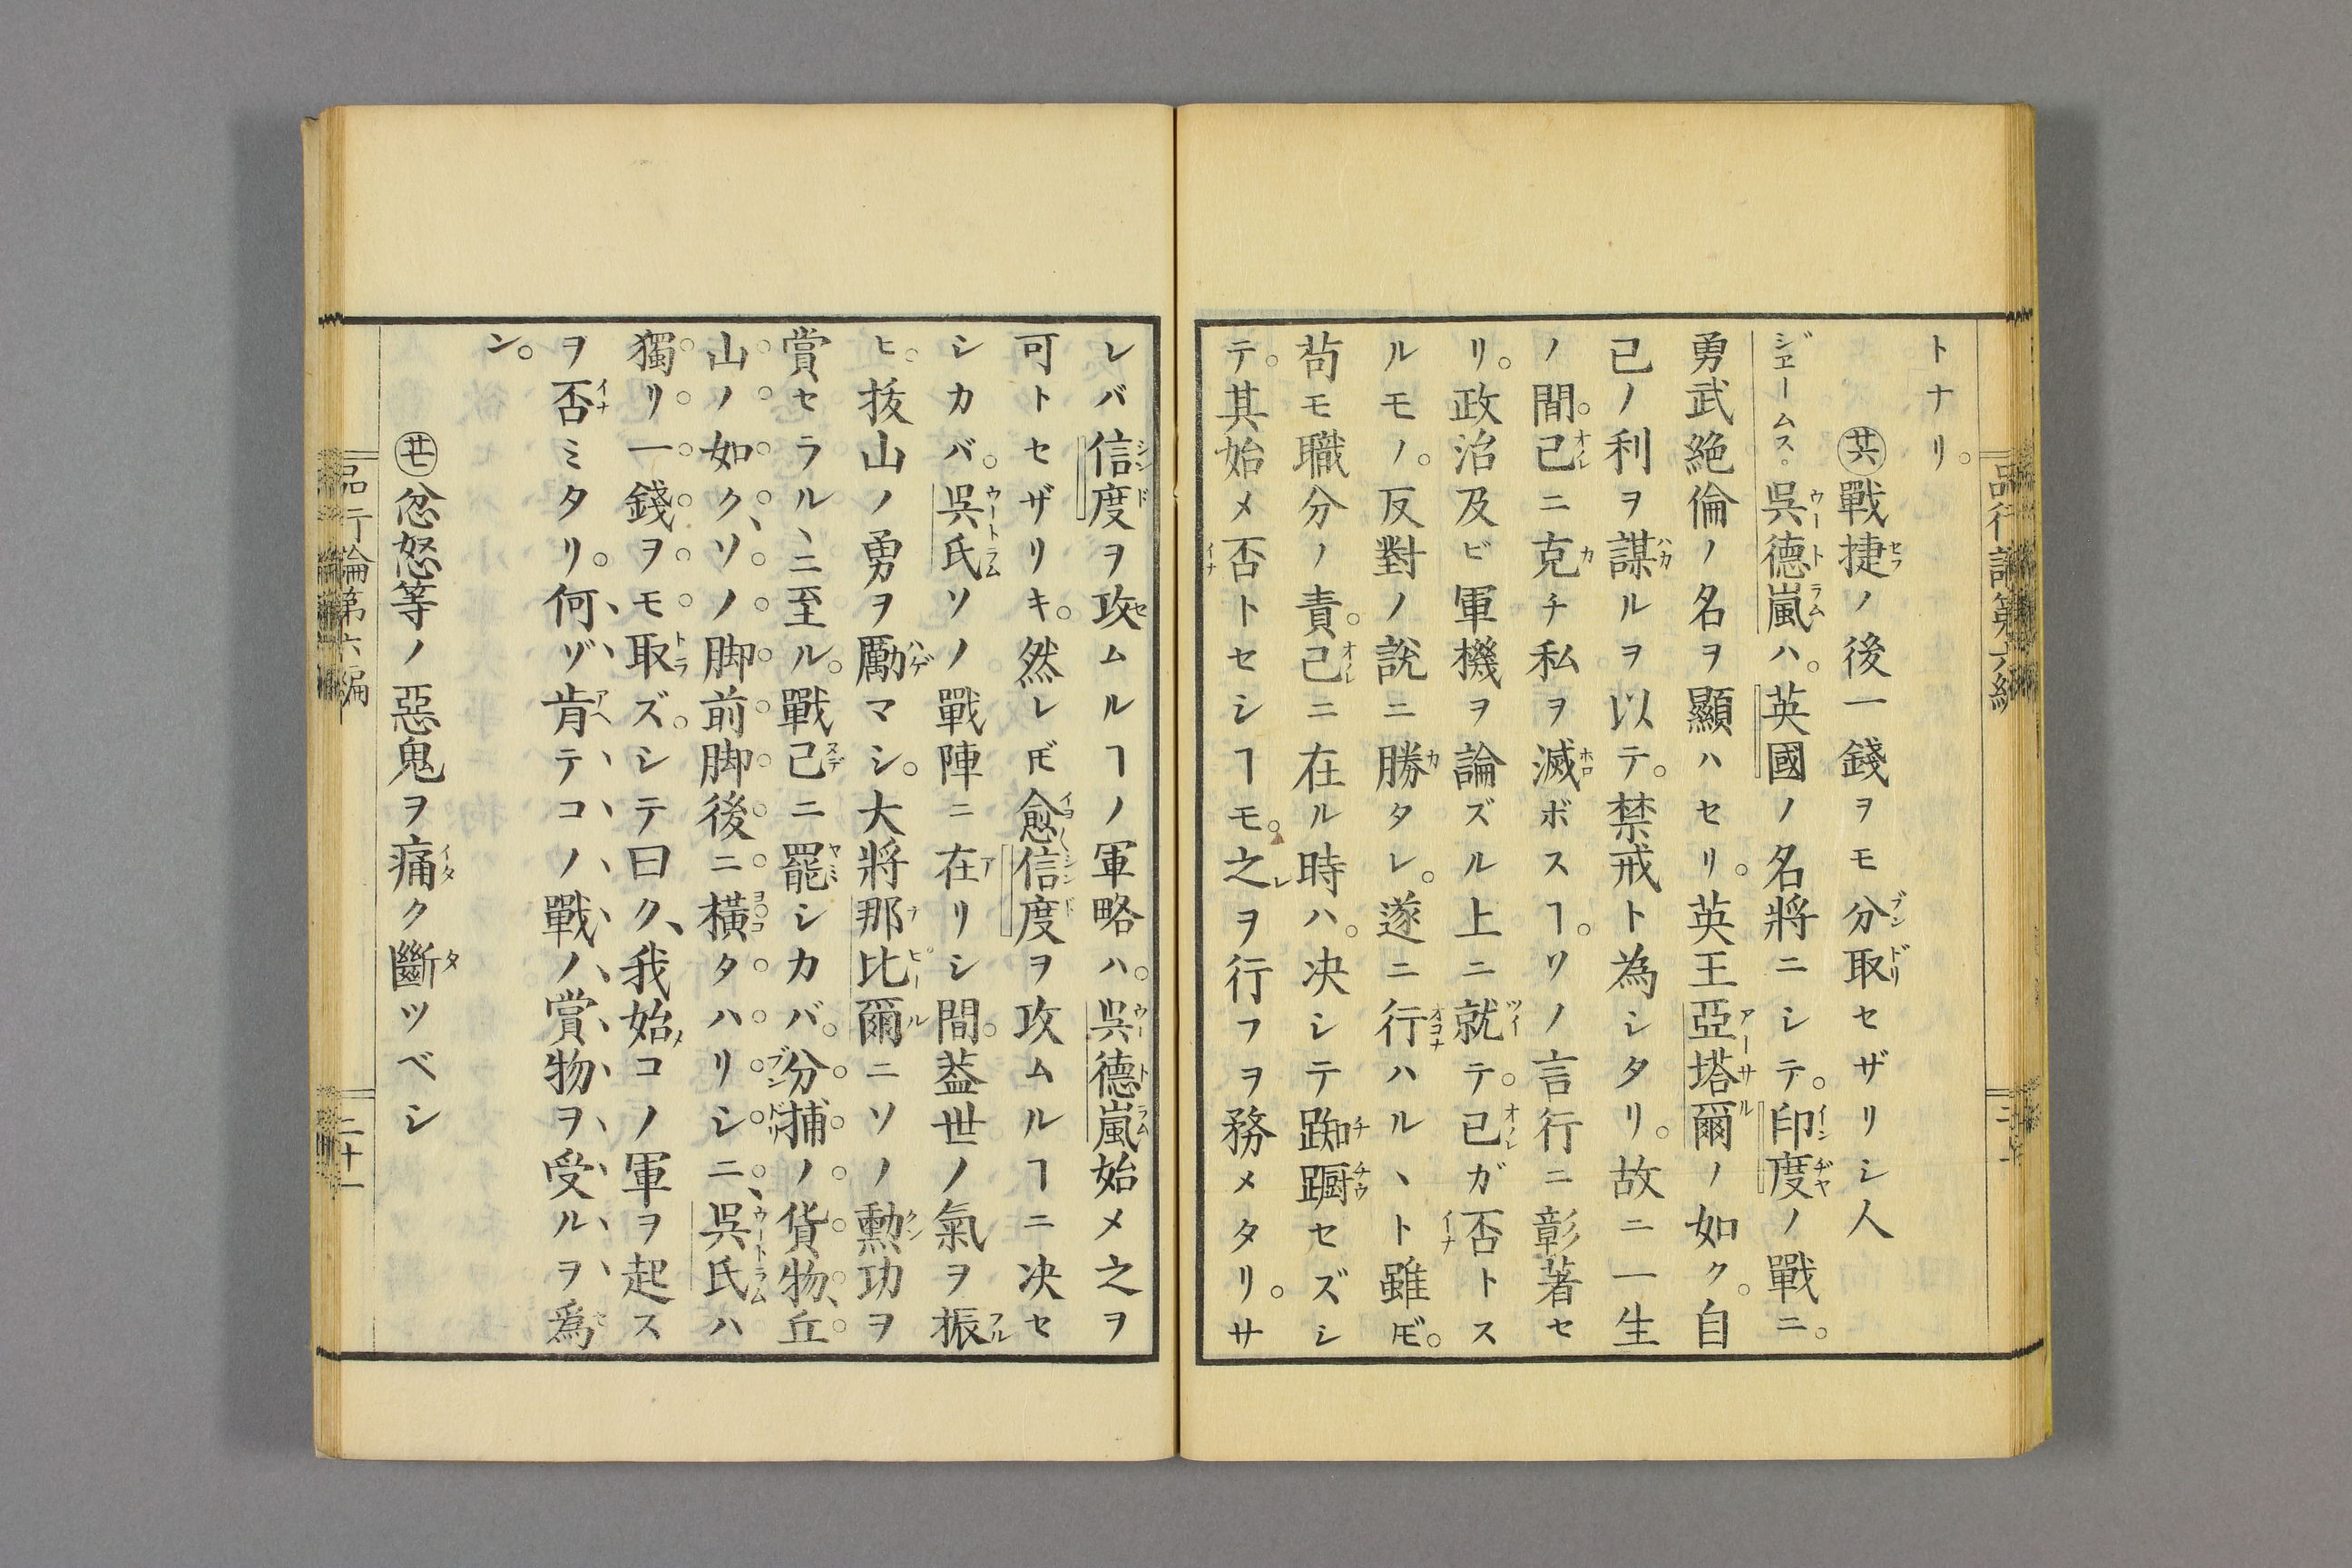 トナリ。
㊅戰捷ノ後一錢ヲモ分取セザリシ人
ジェームス・呉德嵐ハ。英國ノ名將ニシテ。印度ノ戰ニ。
勇武絶倫ノ名ヲ顯ハセリ。英王亞塔爾ノ如ク。自
己ノ利ヲ謀ルヲ以テ。禁戒ト為シタリ。故ニ一生
ノ間。己ニ克チ私ヲ滅ボスヿ。ソノ言行ニ彰著セ
リ。政治及ビ軍機ヲ論ズル上ニ就テ。己ガ否トス
ルモノ。反對ノ説ニ勝タレ。遂ニ行ハルヽト雖𪜈。
苟モ職分ノ責。己ニ在ル時ハ。决シテ踟蹰セズシ
テ。其始メ否トセシヿモ。之ヲ行フヲ務メタリ。サ
レバ信度ヲ攻ムルヿノ軍略ハ。呉德嵐始メ之ヲ
可トセザリキ。然レ𪜈愈信度ヲ攻ムルヿニ决セ
シカバ。呉氏ソノ戰陣ニ在リシ間。葢世ノ氣ヲ振
ヒ。抜山ノ勇ヲ勵マシ。大將那比爾ニソノ勲功ヲ
賞セラルヽニ至ル。戰已ニ罷シカバ。分捕ノ貨物、丘
山ノ如ク、ソノ脚前脚後ニ橫タハリシニ、呉氏ハ
獨リ一錢ヲモ取ズ。シテ曰ク、我始コノ軍ヲ起ス
ヲ否ミタリ。何ゾ肯テコノ戰ノ賞物ヲ受ルヲ爲
ン。
㊆忿怒等ノ惡鬼ヲ痛ク斷ツベシ
品行論第六編
二十一